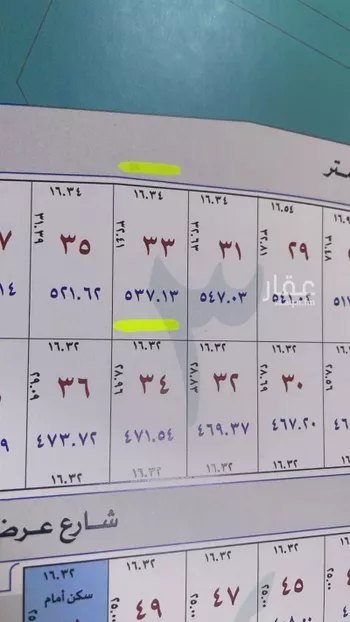 تر
١٦.٣٤ ١٦.٣٤ ١٦.٣٤ ١٦.٥٤
٣١.٤٨ ٢٩ ٣٢.٨١ ٣١ ٣٢.٦٣ ٣٣ ٣٢.٤١ ٣٥ ٣١.٣٩ ٧
عقار
٥٤٧.٠٣ ٥٣٧.١٣ ٥٢١.٦٢
١٦.٣٢ ١٦.٣٢ ١٦.٣٢ ١٦.٣٢
٢٨.٥٦ ٣٠ ٢٨.٦٩ ٣٢ ٢٨.٨٣ ٣٤ ٢٨.٩٦ ٣٦ ٢٩.٠٩
٤٦٧.٢٠ ٤٦٩.٣٧ ٤٧١.٥٤ ٤٧٣.٧٢
١٦.٣٢ ١٦.٣٢ ١٦.٣٢ ١٦.٣٢
شارع عرض
١٦.٣٢ ١٦.٣٢ ١٦.٣٢ ١٦.٣٢
سكن أمام
٤٥ ٢٥.٠٠ ٤٧ ٢٥.٠٠ ٤٩ ٢٥.٠٠